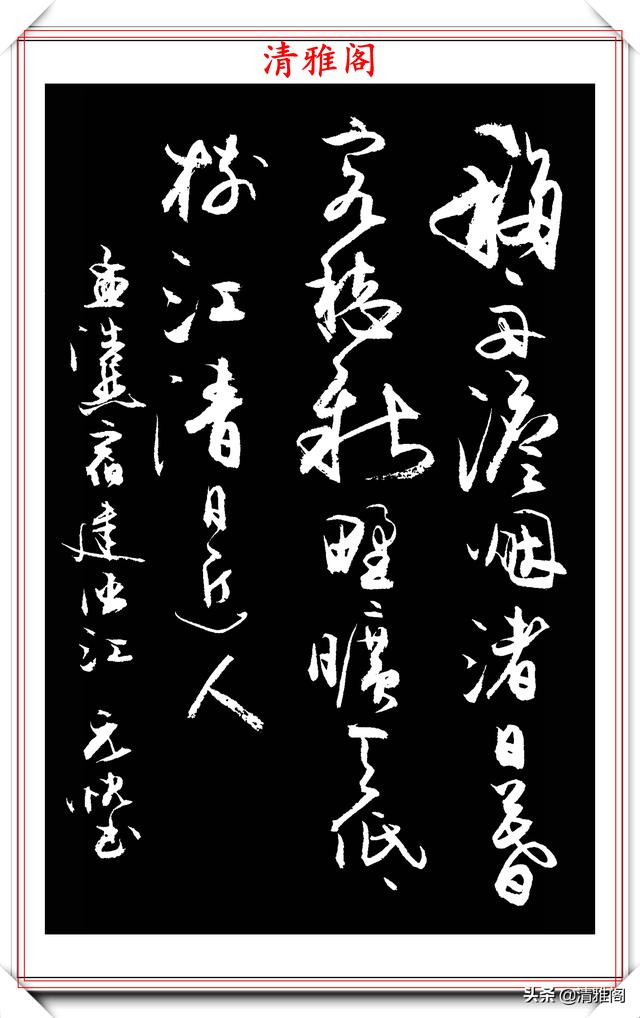 清雅阁
移舟烟渚日暮
客愁新野曠天低
樹江清月近人
孟浩然宿建德江 书
头条 @清雅阁